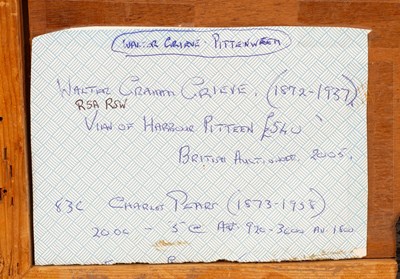 WALTER GRIEVE. PITTENWEEM
WALTER GRAHAM GRIEVE. (1872-1937)
RSA RSW
VIEW OF HARBOUR PITTEEN £540
BRITISH AUCTIONEER. 2005.
83C CHARLES PEARS (1873-1958)
920-3000 AV 1800